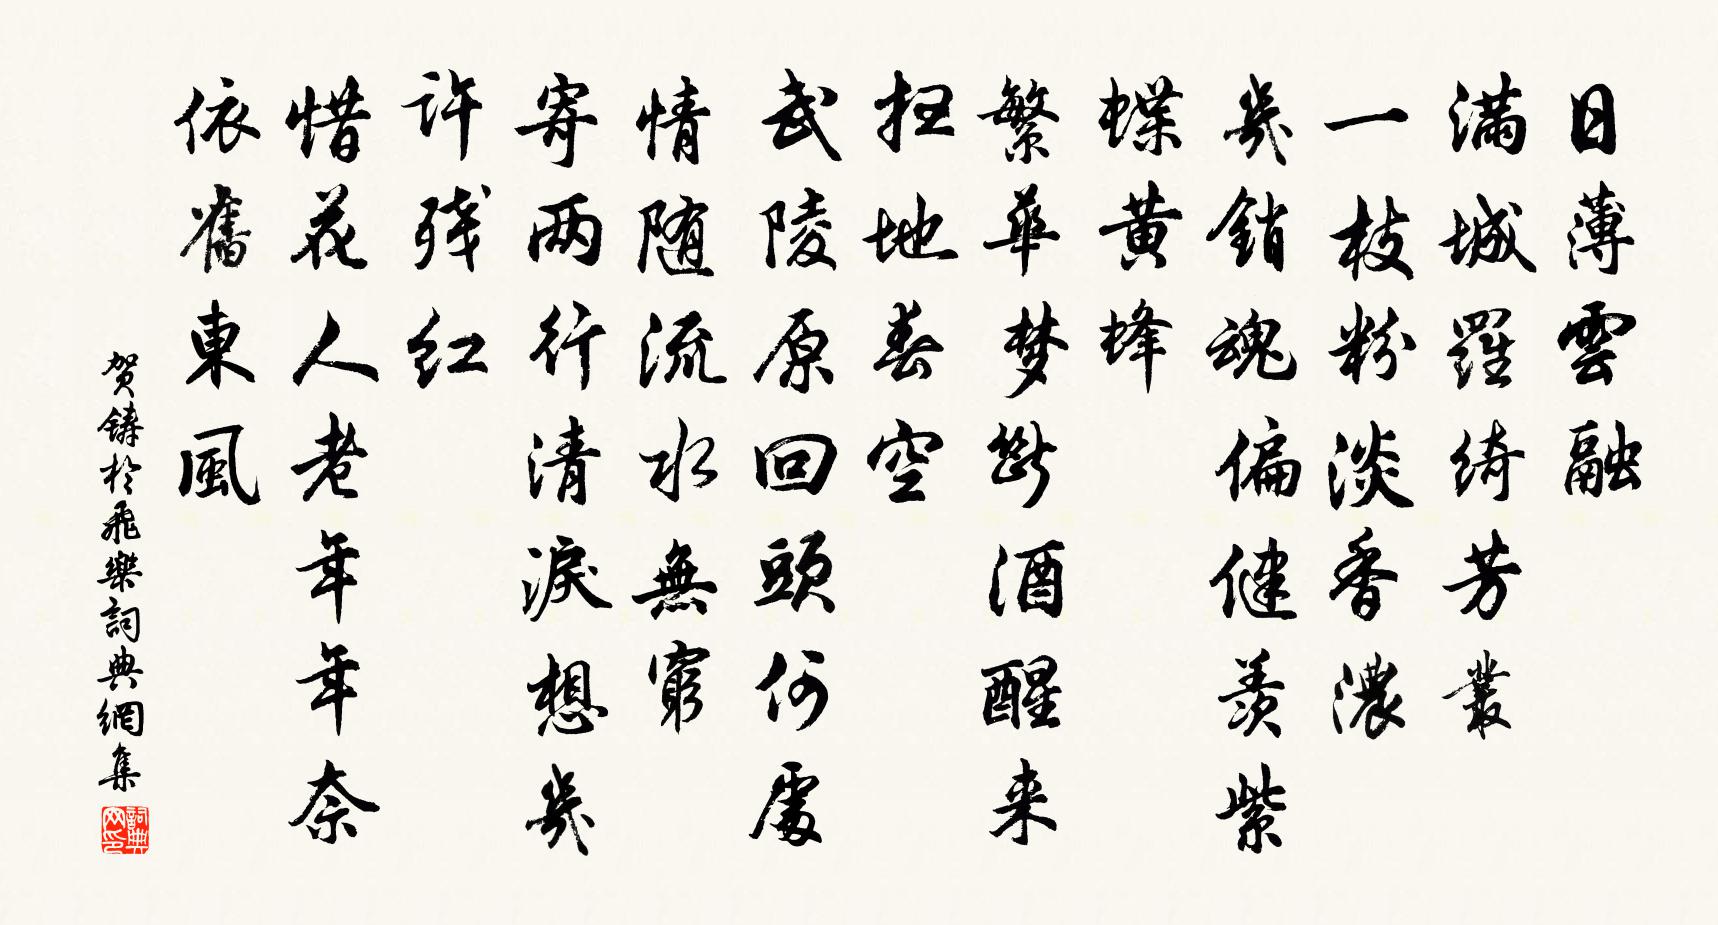 日薄雲融
満城羅綺芳叢
一枝粉淡香濃
幾銷魂偏健羨紫
蝶黄蜂
繁華梦斷酒醒来
扫地春空
武陵原回頭何處
情随流水無窮
寄两行清淚想幾
许残红
惜花人老年年奈
依舊東風
贺鋳於飛樂詞典網集
詞典网印